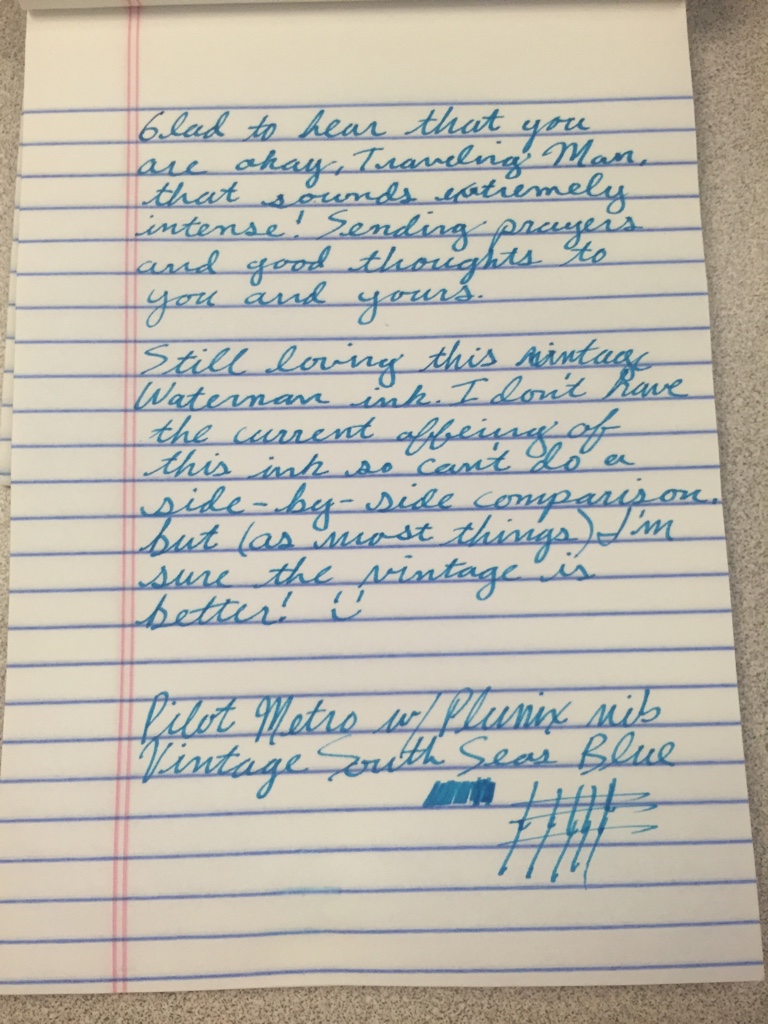 Glad to hear that you
are okay, Traveling Man,
that sounds extremely
intense! Sending prayers
and good thoughts to
you and yours.
Still loving this vintage
Waterman ink. I don't have
the current offeing of
this ink so can't do a
side-by-side comparison,
but (as most things) I'm
sure the vintage is
better! :)
Pilot Metro w/ Plumix nib
Vintage South Seas Blue